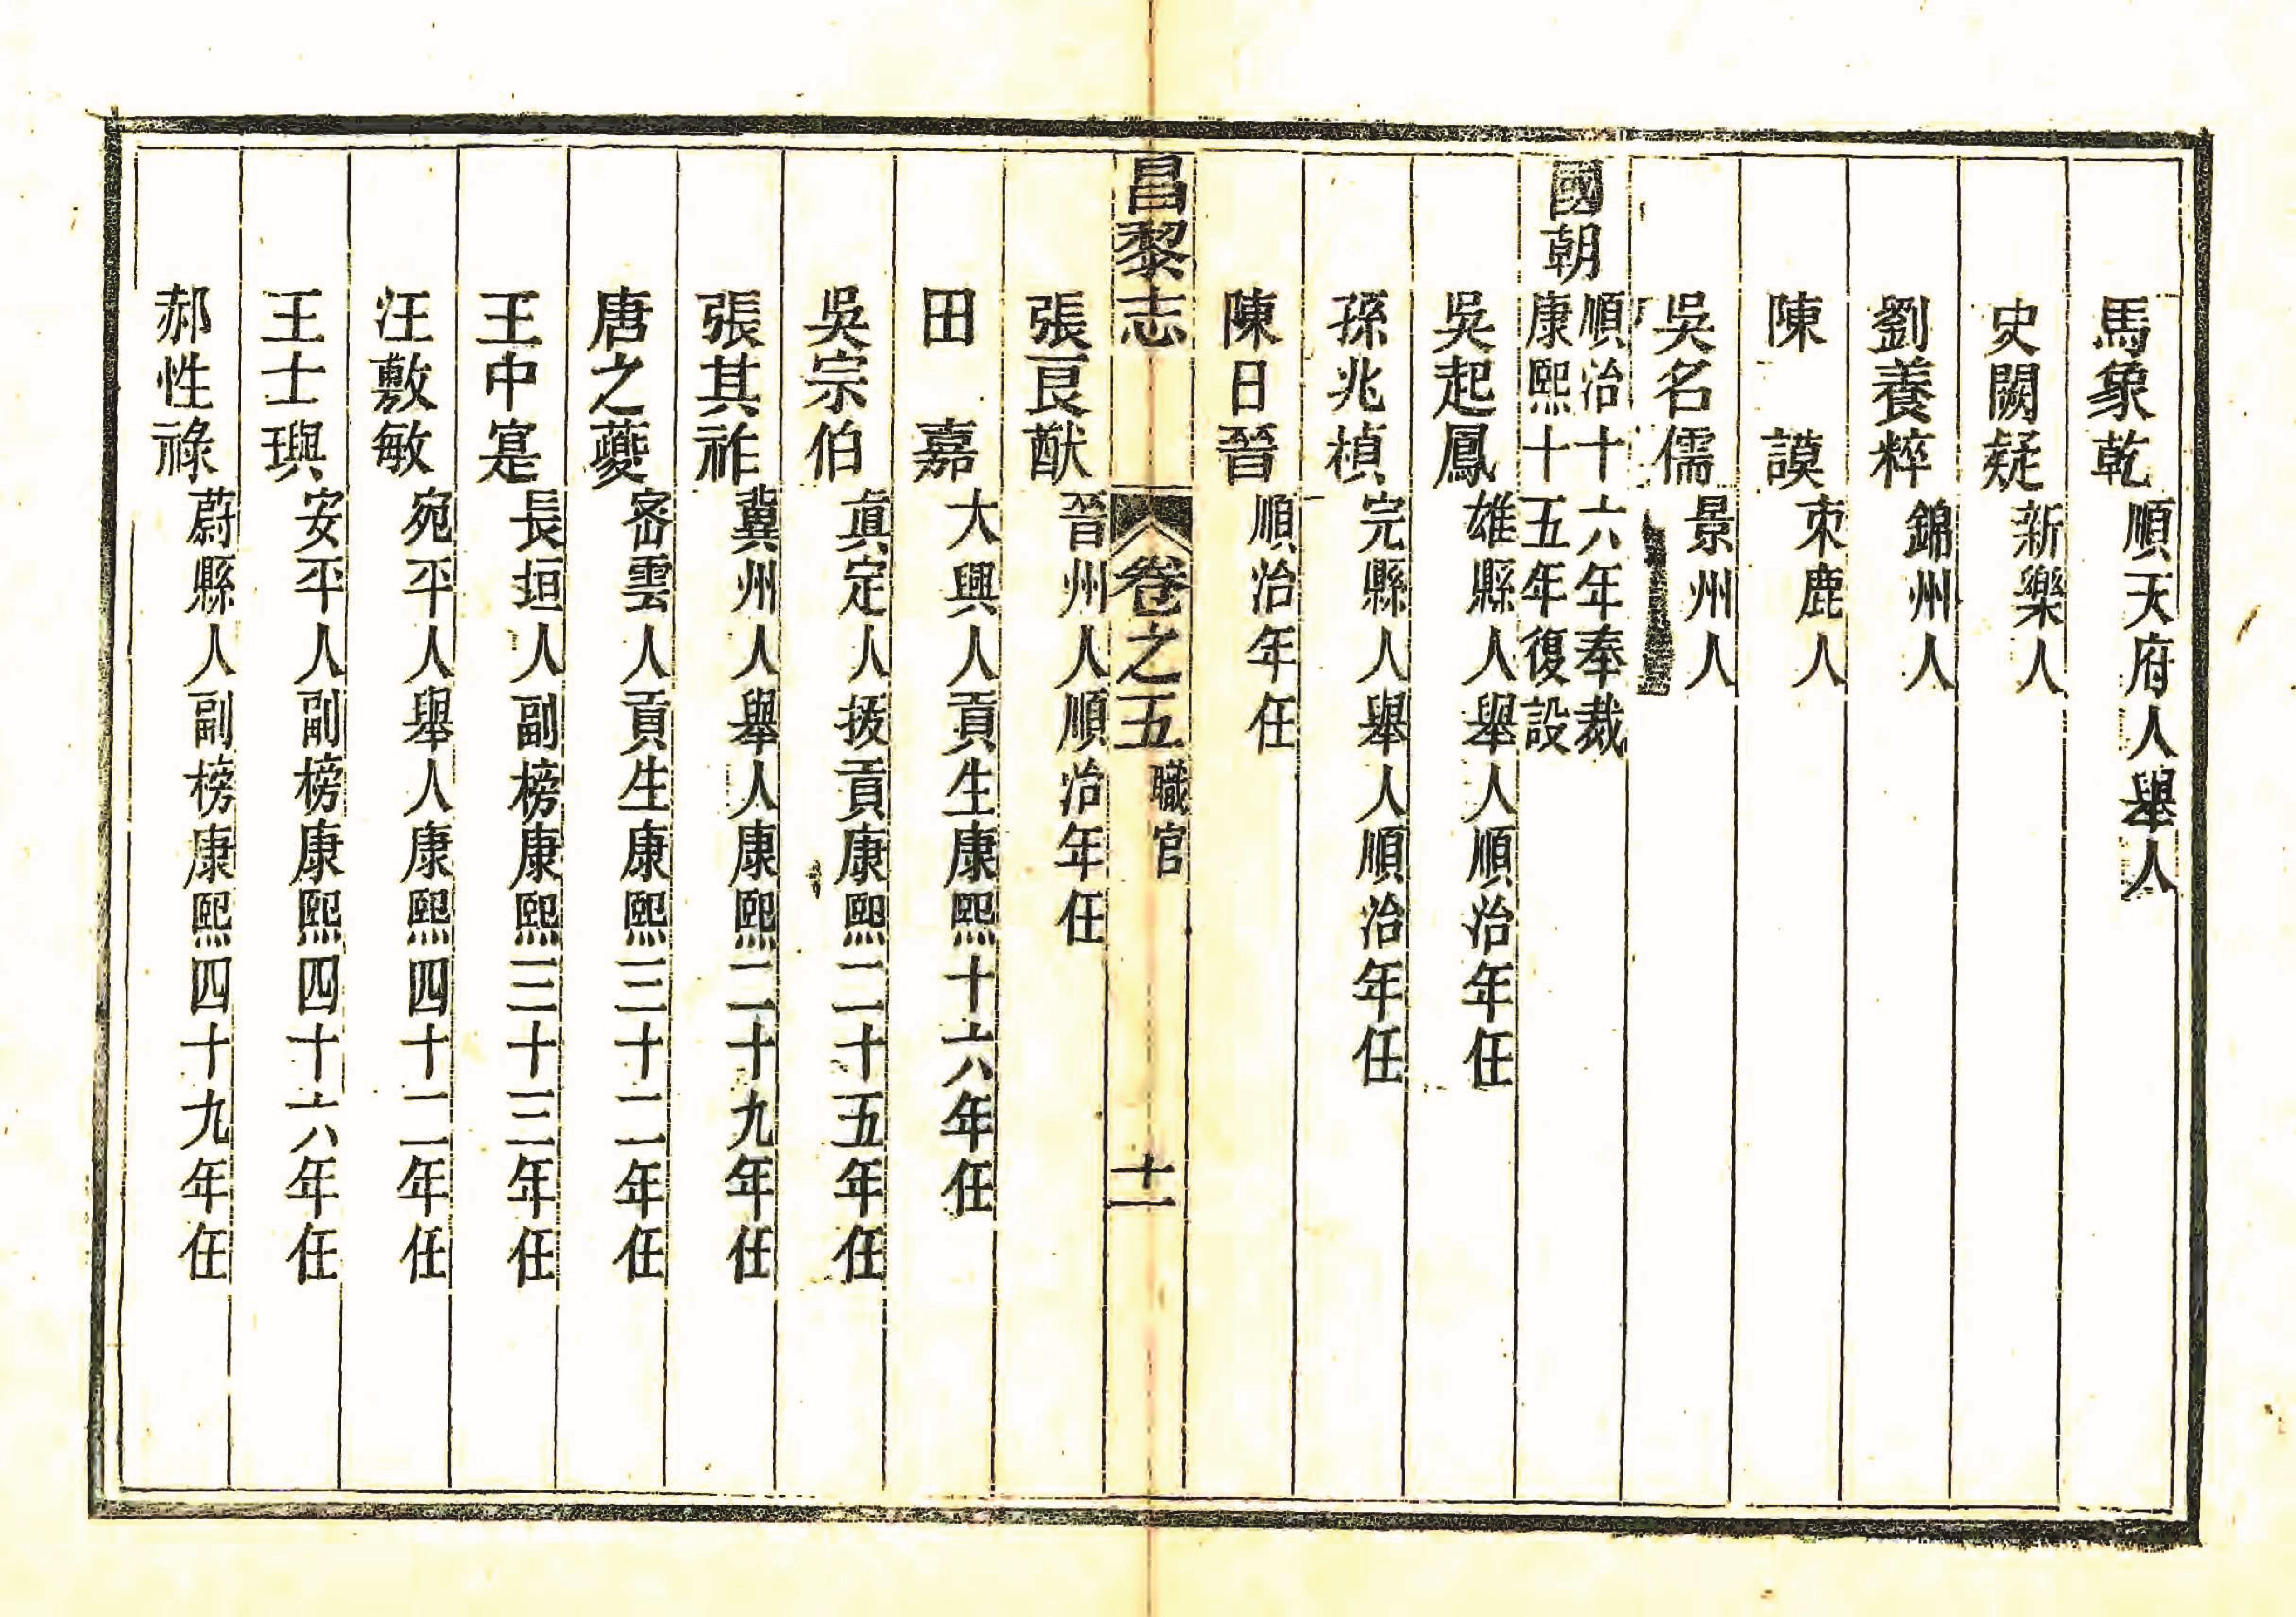 馬象乾 順天府人舉人
史闕疑 新樂人
劉養粹 錦州人
陳謨 朿鹿人
吳名儒 景州人
國朝 順治十六年奉裁
康熙十五年復設
吳起鳳 雄縣人舉人順治年任
孫兆楨 完縣人舉人順治年任
陳日晉 順治年任
昌黎志 卷之五 職官 十一
張良猷 晉州人順治年任
田嘉 大興人貢生康熙十六年任
吳宗伯 眞定人拔貢康熙二十五年任
張其祚 冀州人舉人康熙二十九年任
唐之夔 宻雲人貢生康熙三十二年任
王中寔 長垣人副榜康熙三十三年任
汪敷敏 宛平人舉人康熙四十二年任
王士璵 安平人副榜康熙四十六年任
郝性祿 蔚縣人副榜康熙四十九年任